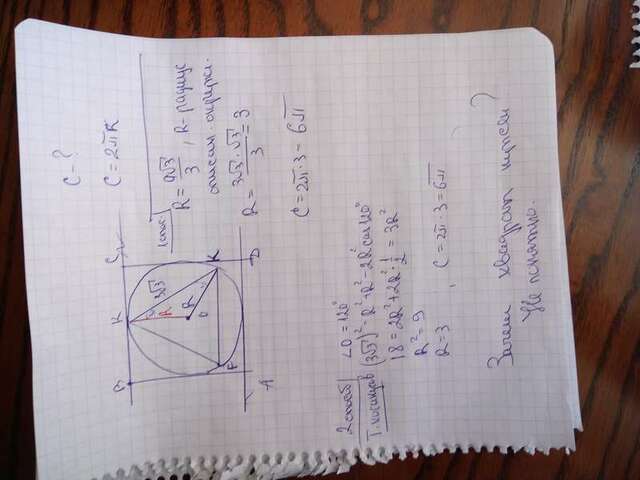 C - ?
C = 2πR
B K C
3√3
R
R
O
F K
A D
1 способ
R = a√3/3, R - радиус
описан. окружн.
R = 3√3 · √3/3 = 3
C = 2π · 3 = 6π
2 способ ∠O = 120°
Т. косинусов (3√3)² = R² + R² - 2R² cos 120°
18 = 2R² + 2R² · 1/2 = 3R²
R² = 9
R = 3, C = 2π · 3 = 6π
Зачем квадрат нужен?
Не понятно.